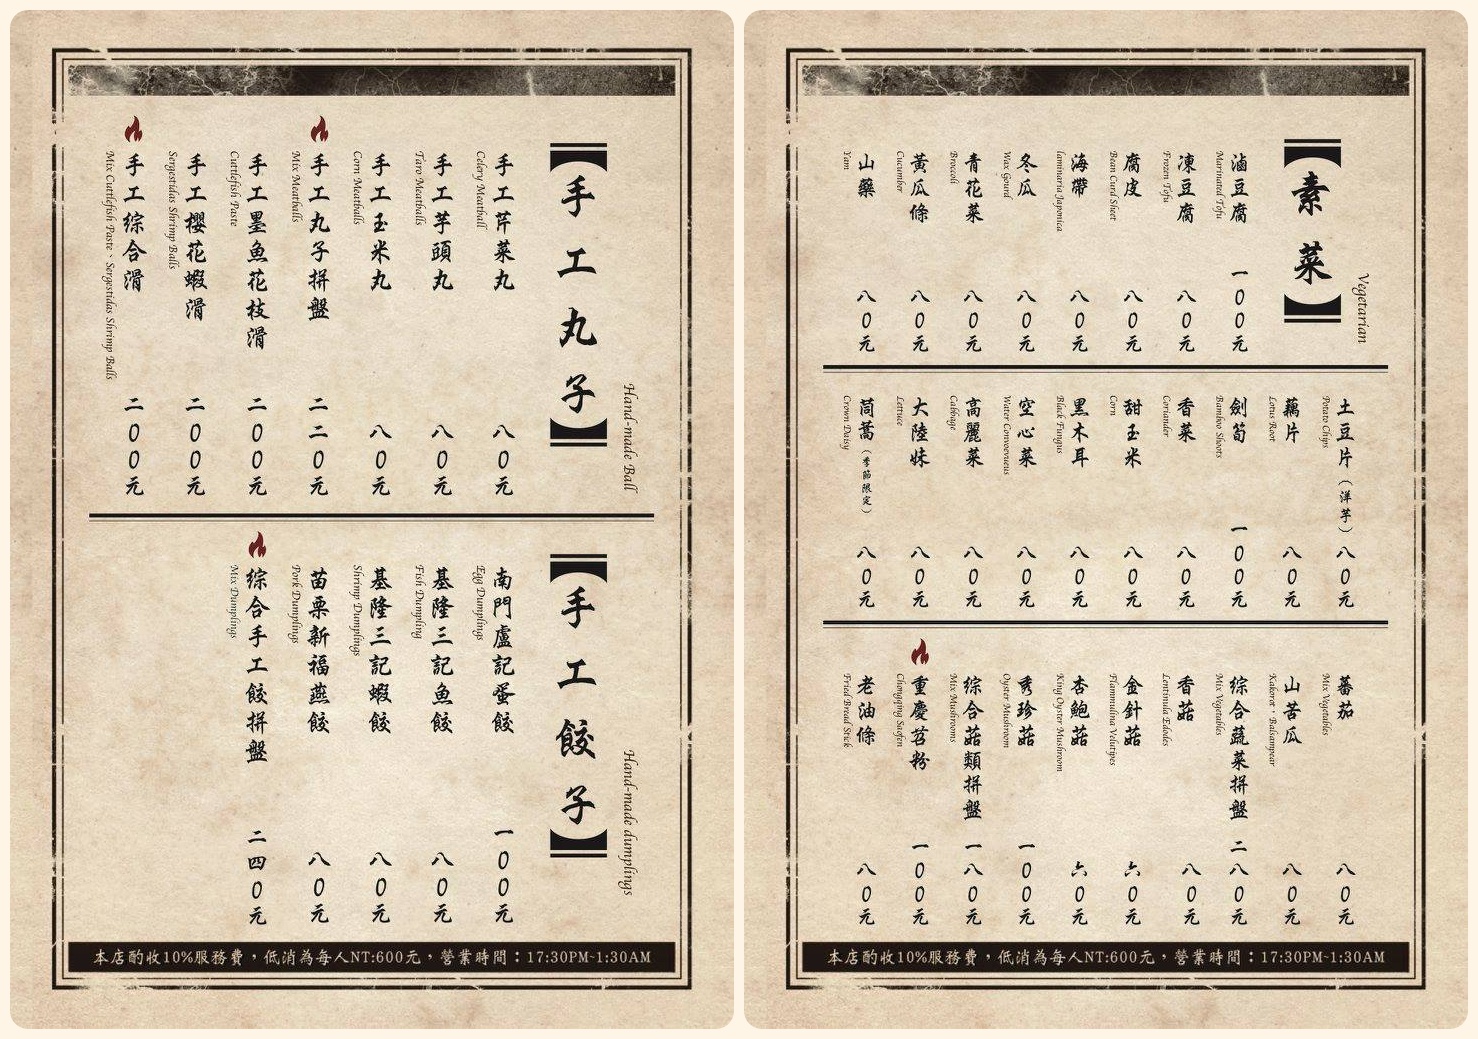 【手工丸子】
Hand-made Ball
手工芹菜丸 八0元
Celery Meatball
手工芋頭丸 八0元
Taro Meatballs
手工玉米丸 八0元
Corn Meatballs
手工丸子拼盤 二二0元
Mix Meatballs
手工墨魚花枝滑 二00元
Cuttlefish Paste
手工櫻花蝦滑 二00元
Sergestidas Shrimp Balls
手工综合滑 二00元
Mix Cuttlefish Paste、Sergestidas Shrimp Balls
【手工餃子】
Hand-made dumplings
南門盧記蛋餃 一00元
Egg Dumplings
基隆三記魚餃 八0元
Fish Dumpling
基隆三記蝦餃 八0元
Shrimp Dumplings
苗栗新福燕餃 八0元
Pork Dumplings
综合手工餃拼盤 二四0元
Mix Dumplings
本店酌收10%服務費，低消為每人NT:600元，營業時間：17:30PM~1:30AM
【素菜】
Vegetarian
滷豆腐 一00元
Marinated Tofu
凍豆腐 八0元
Frozen Tofu
腐皮 八0元
Bean Curd Sheet
海帶 八0元
laminaria Japonica
冬瓜 八0元
Wax Gourd
青花菜 八0元
Broccoli
黃瓜條 八0元
Cucumber
山藥 八0元
Yam
土豆片（洋芋） 八0元
Potato Chips
藕片 八0元
Lotus Root
劍筍 一00元
Bamboo Shoots
香菜 八0元
Coriander
甜玉米 八0元
Corn
黑木耳 八0元
Black Fungus
空心菜 八0元
Water Convovevueus
高麗菜 八0元
Cabbage
大陸妹 八0元
Lettuce
茼蒿（季節限定） 八0元
Crown Daisy
蕃茄 八0元
Mix Vegetables
山苦瓜 八0元
Kakorot、Balsampear
综合蔬菜拼盤 二八0元
Mix Vegetables
香菇 八0元
Lentinula Edodes
金針菇 六0元
Flammulina Velutipes
杏鮑菇 六0元
King Oyster Mushroom
秀珍菇 一00元
Oyster Mushroom
综合菇類拼盤 一八0元
Mix Mushrooms
重慶苕粉 一00元
Chongqing Suofen
老油條 八0元
Fried Bread Stick
本店酌收10%服務費，低消為每人NT:600元，營業時間：17:30PM~1:30AM